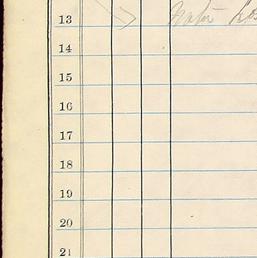 13 Water
14
15
16
17
18
19
20
21